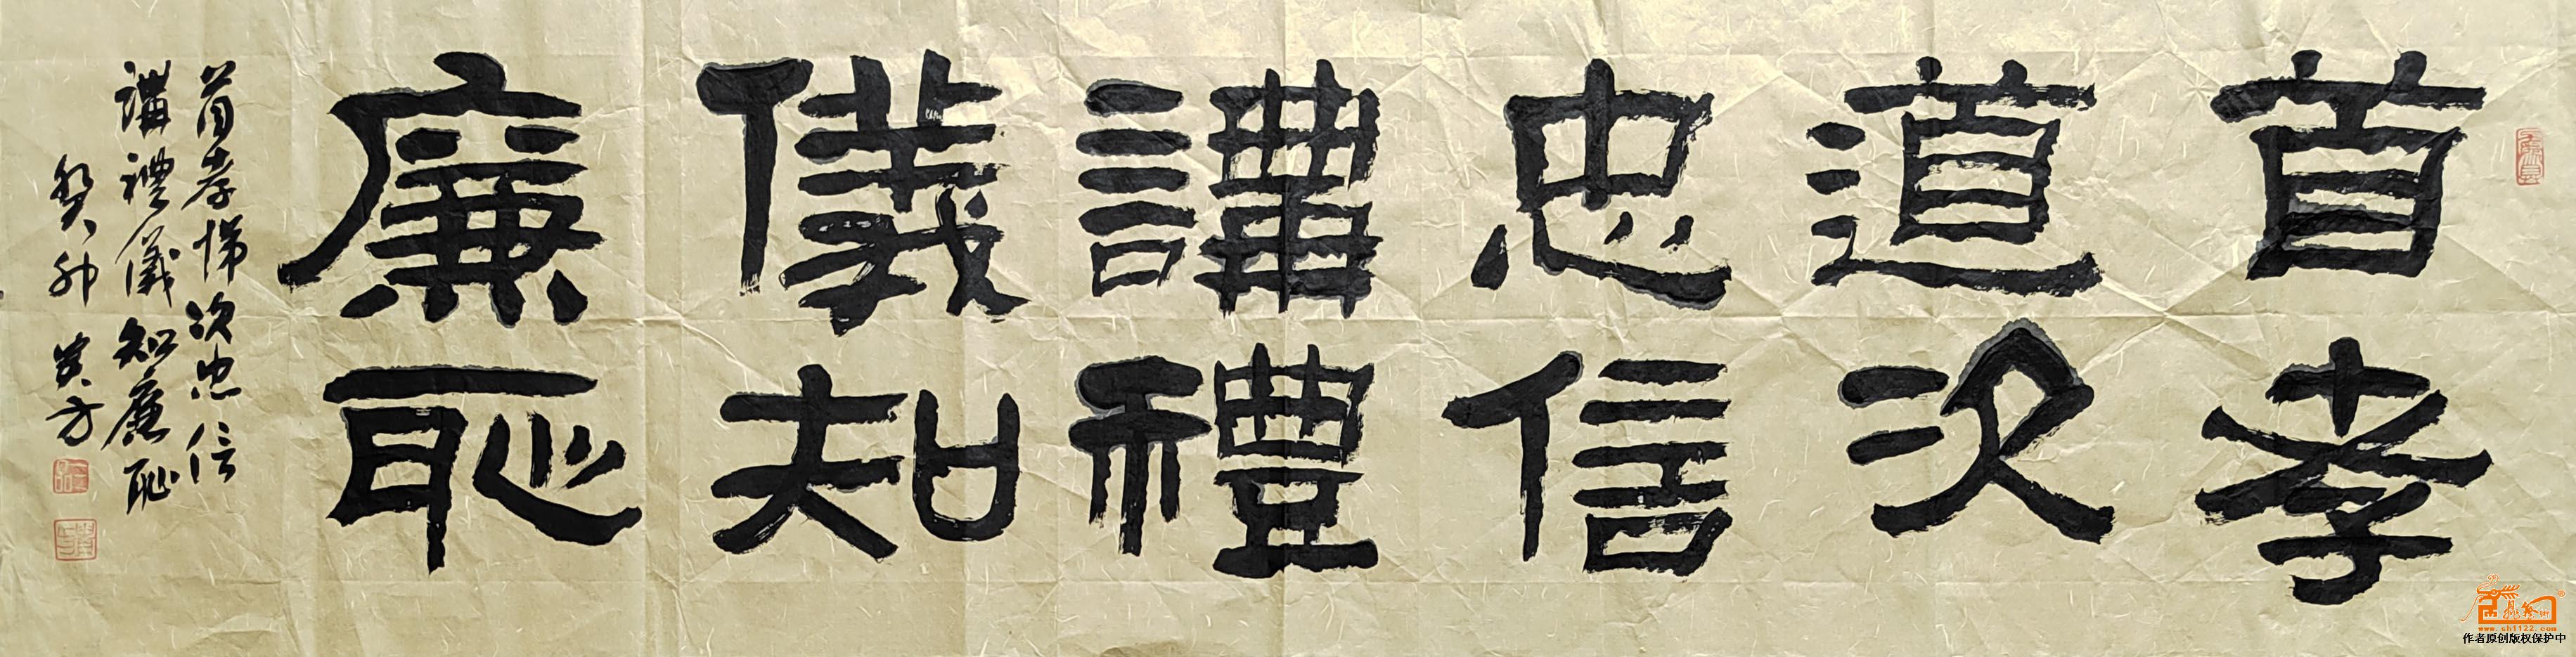 首孝
道次
忠信
講禮
儀知
廉恥
首孝悌次忠信
講禮儀知廉恥
癸卯
www.sh1122.com
作者原创版权保护中